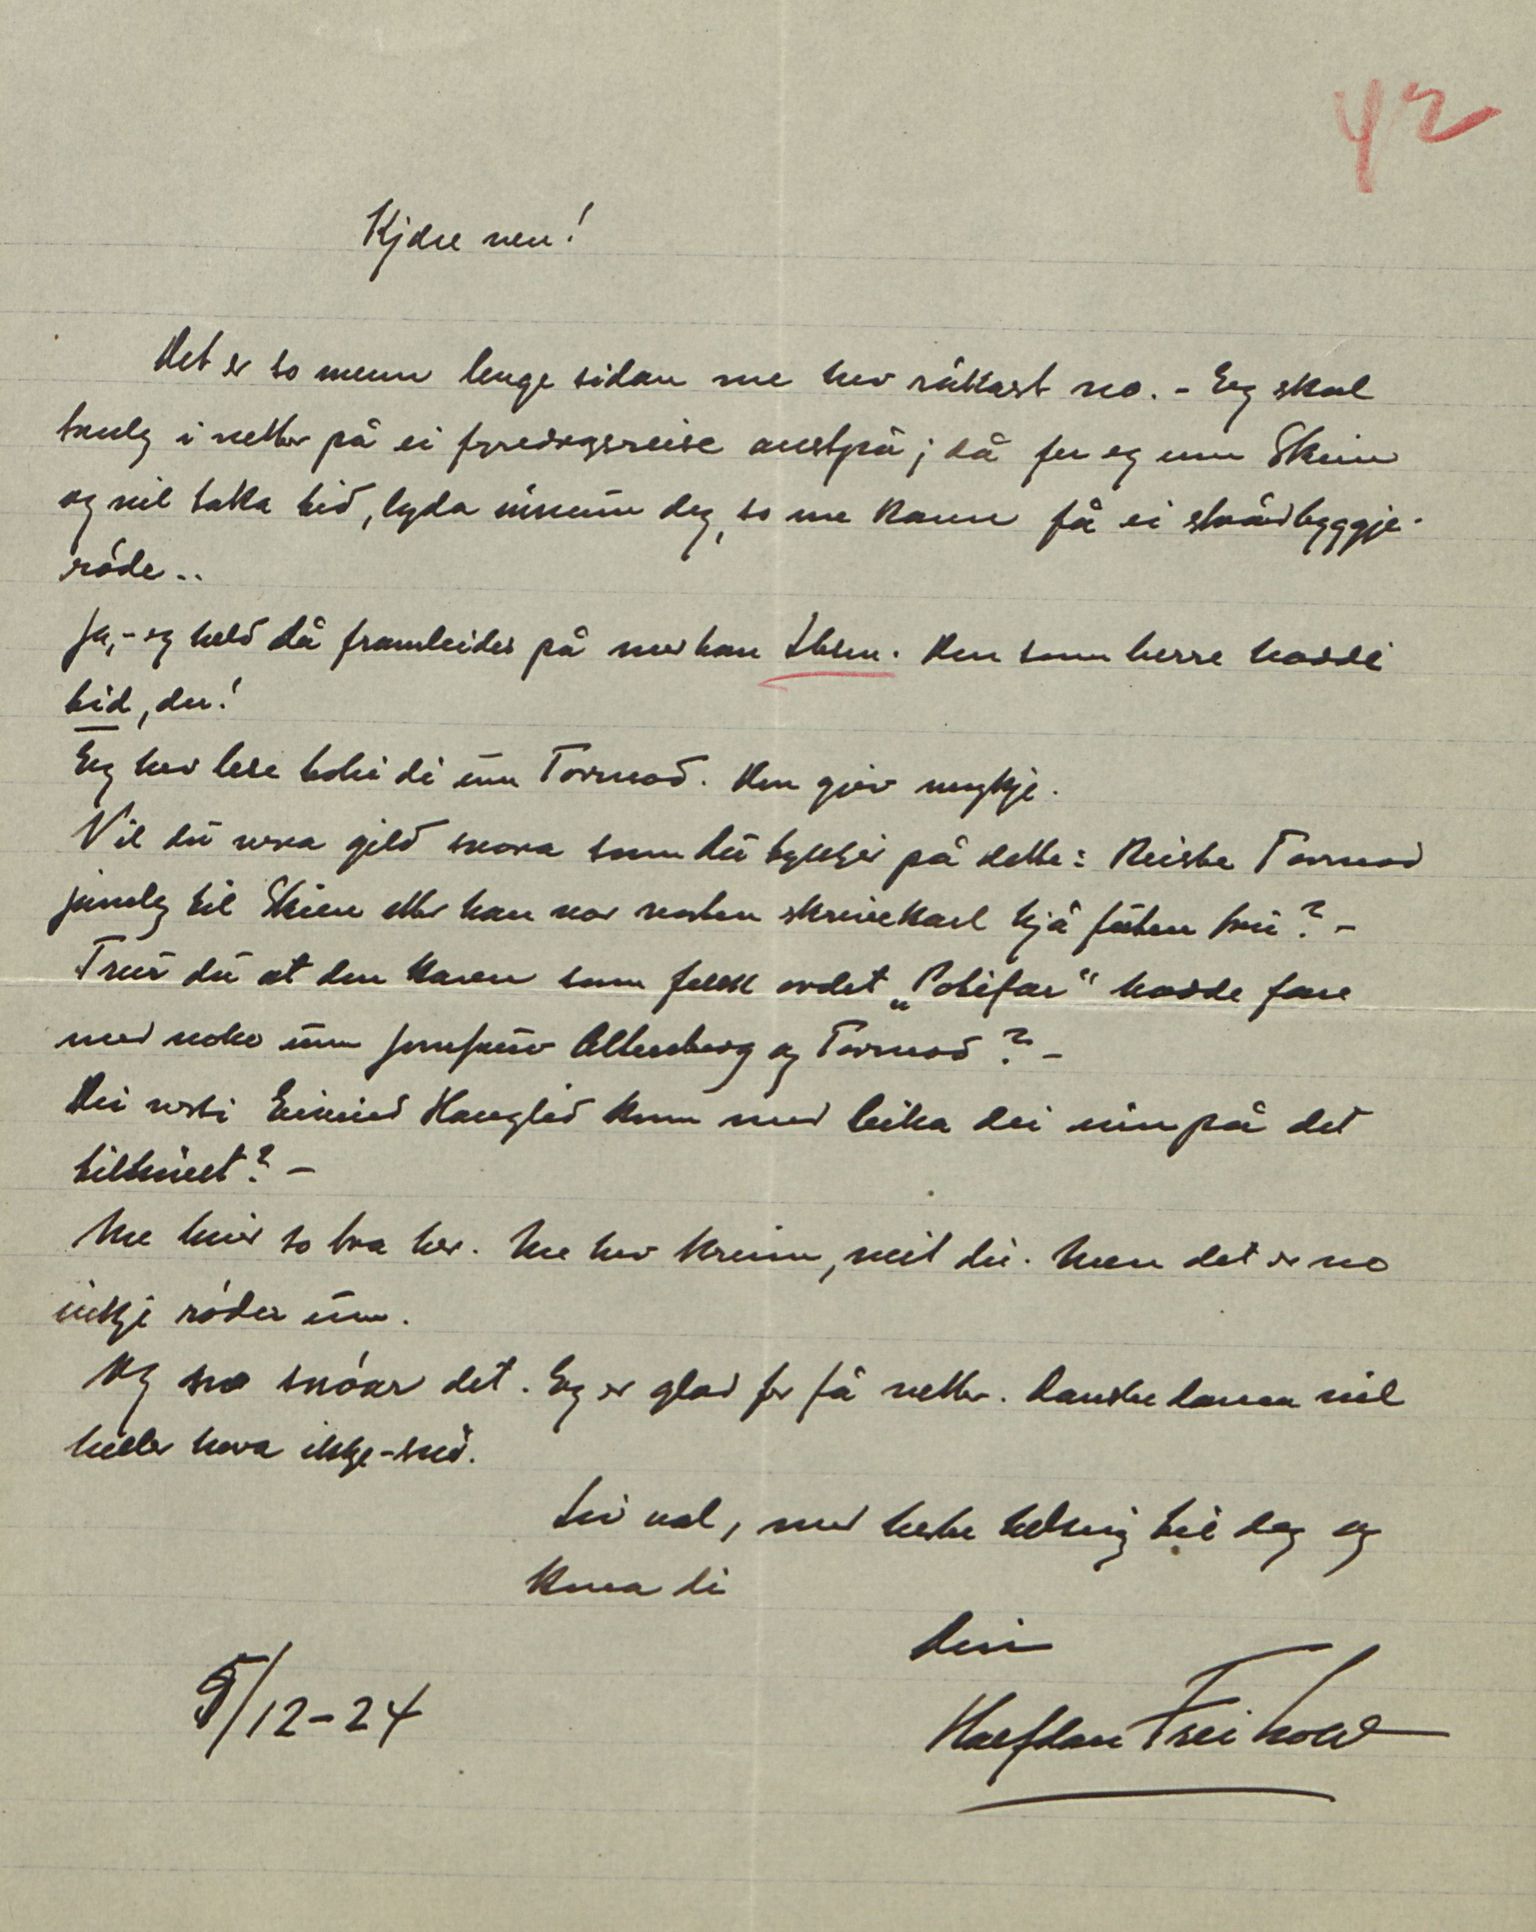 42
Kjære ven!
Det er so menn lenge sidan me hev råkast no. - Eg skal
truleg i vetter på ei fyredragsreise austpå; då fer eg um Skien
og vil taka tid, lyda innum deg, so me kann få ei skåldbyggje-
røde..
Ja, - eg held då framleides på med han Ibsen. Den som berre hadde
tid, du!
Eg hev lese boki di um Tormod. Den gjev mykje.
Vil du vera gild svara som du tykkjer på dette: Reiste Tormod
jamleg til Skien etter han var vorten skrivekarl hjå futen
Trur du at den karen som fekk ordet "Potifar" hadde fare
med noko um jomfruv Altenburg og Tormod? -
Dei verti Eivind Hauglid kom med leika dei inn på det
tilhøvet? -
Me liver so bra her. Me hev krim, veit du. Men det er no
inkje røder um.
Og snøar det. Eg er glad for få vetter. Danske dama vil
heller hava ikkje-snø.
Liv vel, med beste helsing til deg og
kona di
Din
Halfdan Freihow
5/12-24